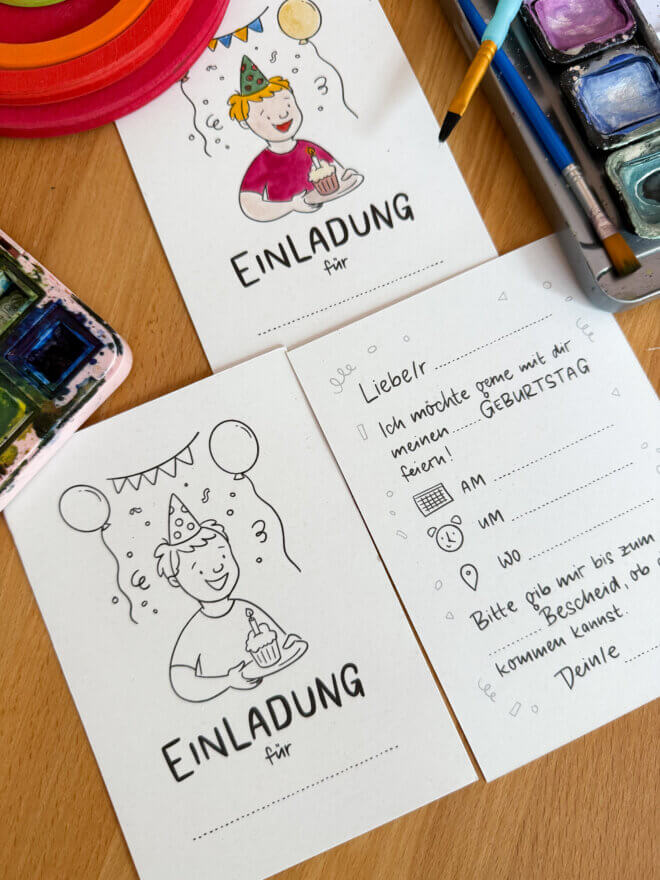 EINLADUNG
für
Liebe/r
Ich möchte gerne mit dir
meinen ...... GEBURTSTAG
feiern!
AM
UM
WO
Bitte gib mir bis zum
Bescheid, ob
kommen kannst.
Dein/e
EINLADUNG
für